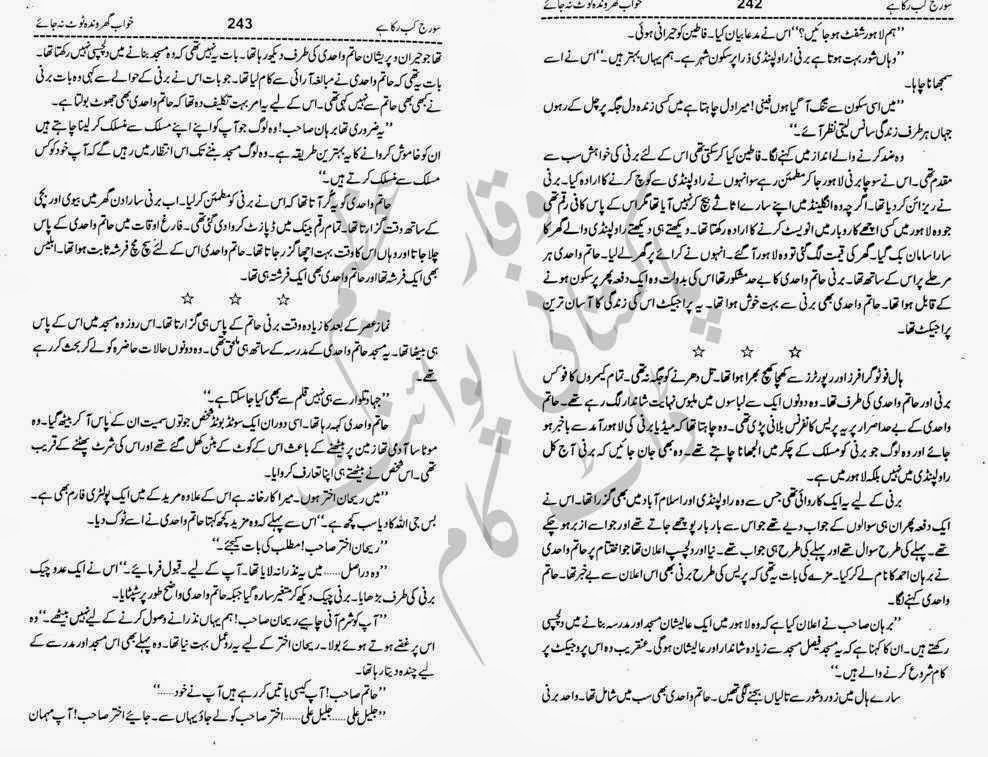 سورج کب رکا ہے
242
خواب گھروندہ ٹوٹ نہ جائے
”ہم لاہور شفٹ ہو جائیں؟“ اس نے مدعا بیان کیا۔ فاطین کو حیرانی ہوئی۔
”وہاں شور بہت ہوتا ہے برنی! راولپنڈی ذرا پرسکون شہر ہے۔ ہم یہاں بہتر ہیں۔“ اس نے اسے
سمجھانا چاہا۔
”میں اسی سکون سے تنگ آ گیا ہوں فینی! میرا دل چاہتا ہے میں کسی زندہ دل جگہ پر چل کے رہوں
جہاں ہر طرف زندگی سانس لیتی نظر آئے۔“
وہ ضد کرنے والے انداز میں کہنے لگا۔ فاطین کیا کر سکتی تھی اس کے لئے برنی کی خواہش سب سے
مقدم تھی۔ اس نے سوچا برنی لاہور جا کر مطمئن رہے سو انہوں نے راولپنڈی سے کوچ کرنے کا ارادہ کیا۔ برنی
نے ریزائن کر دیا تھا۔ اگرچہ وہ انگلینڈ میں اپنے سارے اثاثے بیچ کر نہیں آیا تھا مگر اس کے پاس کافی رقم تھی
جو وہ لاہور میں کسی اچھے کاروبار میں انویسٹ کرنے کا ارادہ رکھتا تھا۔ دیکھتے ہی دیکھتے راولپنڈی والے گھر کا
سارا سامان بک گیا۔ گھر کی قیمت لگ گئی تو وہ لاہور آ گئے۔ انہوں نے کرائے پر گھر لے لیا۔ حاتم واحدی ہر
مرحلے پر اس کے ساتھ تھا۔ برنی حاتم واحدی کا بے حد مشکور تھا اس کی بدولت وہ ایک دفعہ پھر پرسکون ہونے
کے قابل ہوا تھا۔ حاتم واحدی بھی برنی سے بہت خوش ہوا تھا۔ یہ پراجیکٹ اس کی زندگی کا آسان ترین
پراجیکٹ تھا۔
☆ ☆ ☆
ہال فوٹوگرافرز اور رپورٹرز سے کھچا کھچ بھرا ہوا تھا۔ تل دھرنے کو جگہ نہ تھی۔ تمام کیمروں کا فوکس
برنی اور حاتم واحدی کی طرف تھا۔ وہ دونوں ایک سے لباسوں میں ملبوس نہایت شاندار لگ رہے تھے۔ حاتم
واحدی کے بے حد اصرار پر یہ پریس کانفرنس بلائی پڑی تھی۔ وہ چاہتا تھا کہ میڈیا برنی کی لاہور آمد سے باخبر ہو
جائے اور وہ لوگ جو برنی کو مسلک کے چکر میں الجھانا چاہتے تھے۔ وہ بھی جان جائیں کہ برنی آج کل
راولپنڈی میں نہیں بلکہ لاہور میں ہے۔
برنی کے لیے یہ ایک کاروائی تھی جس سے وہ راولپنڈی اور اسلام آباد میں بھی گزرا تھا۔ اس نے
ایک دفعہ پھر ان ہی سوالوں کے جواب دیے تھے جو اس سے بار بار پوچھے جاتے تھے اور جو اسے ازبر ہو چکے
تھے۔ پہلے کی طرح سوال تھے اور پہلے کی طرح ہی جواب تھے۔ نیا اور دلچسپ اعلان تھا جو اختتام پر حاتم واحدی
نے برہان احمد کا نام لے کر کیا۔ مزے کی بات یہ تھی کہ پریس کی طرح برنی بھی اس اعلان سے بے خبر تھا۔ حاتم
واحدی کہنے لگا۔
”برہان صاحب نے اعلان کیا ہے کہ وہ لاہور میں ایک عالیشان مسجد اور مدرسہ بنانے میں دلچسپی
رکھتے ہیں۔ ان کا کہنا ہے کہ یہ مسجد فیصل مسجد سے زیادہ شاندار اور عالیشان ہوگی۔ عنقریب وہ اس پروجیکٹ پر
کام شروع کرنے والے ہیں۔“
سارے ہال میں زور و شور سے تالیاں بجنے لگی تھیں۔ حاتم واحدی بھی سب میں شامل تھا۔ واحد برنی
سورج کب رکا ہے
243
خواب گھروندہ ٹوٹ نہ جائے
تھا جو حیران و پریشان حاتم واحدی کی طرف دیکھ رہا تھا۔ بات یہ نہیں تھی کہ وہ مسجد بنانے میں دلچسپی نہیں رکھتا تھا۔
بات یہ تھی کہ حاتم واحدی نے مبالغہ آرائی سے کام لیا تھا۔ جو بات اس نے برنی کے حوالے سے کہی وہ بات برنی
نے کبھی بھی حاتم سے نہیں کہی تھی۔ اس کے لیے یہ امر بہت تکلیف دہ تھا کہ حاتم واحدی بھی جھوٹ بولتا ہے۔
”یہ ضروری تھا برہان صاحب! وہ لوگ جو آپ کو اپنے اپنے مسلک سے منسلک کر لینا چاہتے ہیں
ان کو خاموش کروانے کا یہ بہترین طریقہ ہے۔ وہ لوگ مسجد بننے تک اس انتظار میں رہیں گے کہ آپ خود کو کس
مسلک سے منسلک کرتے ہیں۔“
حاتم واحدی کو یہ گر آتا تھا کہ اس نے برنی کو مطمئن کر لیا۔ اب برنی سارا دن گھر میں بیوی اور بچی
کے ساتھ وقت گزارتا تھا۔ تمام رقم بینک میں ڈپازٹ کروا دی گئی تھی۔ فارغ اوقات میں حاتم واحدی کے پاس
چلا جاتا اور وہاں اس کا وقت بہت اچھا گزر جاتا تھا۔ حاتم واحدی اس کے لئے سچ مچ فرشتہ ثابت ہوا تھا۔ ابلیس
بھی ایک فرشتہ تھا اور حاتم واحدی بھی ایک فرشتہ ہی تھا۔
☆ ☆ ☆
نماز عصر کے بعد کا زیادہ وقت برنی حاتم کے پاس ہی گزارتا تھا۔ اس روز وہ مسجد میں اس کے پاس
ہی بیٹھا تھا۔ یہ مسجد حاتم واحدی کے مدرسہ کے ساتھ ہی ملحق تھی۔ وہ دونوں حالات حاضرہ کو لے کر بحث کر رہے
تھے۔
”جہاد تلوار سے ہی نہیں قلم سے بھی کیا جا سکتا ہے۔“
حاتم واحدی کہہ رہا تھا۔ اسی دوران ایک سوٹڈ بوٹڈ شخص جوتوں سمیت ان کے پاس آ کر بیٹھ گیا۔ وہ
موٹا سا آدمی تھا زمین پر بیٹھنے کے باعث اس کے کوٹ کے بٹن کھل گئے تھے اور اس کی شرٹ پھٹنے کے قریب
تھی۔ اس شخص نے بیٹھتے ہی اپنا تعارف کروایا۔
”میں ریحان اختر ہوں۔ میرا کارخانہ ہے اس کے علاوہ مرید کے میں ایک پولٹری فارم بھی ہے۔
بس جی اللہ کا دیا سب کچھ ہے۔“ اس سے پہلے کہ وہ مزید کچھ کہتا حاتم واحدی نے اسے ٹوک دیا۔
”ریحان اختر صاحب! مطلب کی بات کیجئے۔“
”وہ دراصل...... میں یہ نذرانہ لایا تھا۔ آپ کے لیے۔ قبول فرمائیے۔“ اس نے ایک عدد چیک
برنی کی طرف بڑھایا۔ برنی چیک دیکھ کر متغیر سا رہ گیا جبکہ حاتم واحدی واضح طور پر سٹپٹایا۔
”آپ کو شرم آنی چاہیے ریحان صاحب! ہم یہاں نذرانے وصول کرنے کے لیے نہیں بیٹھے۔“ وہ
اس پر غصے ہوتے ہوئے بولا۔ ریحان اختر کے لیے یہ ردعمل بہت نیا تھا۔ وہ پہلے بھی اس مسجد اور مدرسے کے
لیے چندہ دیتا رہا تھا۔
”حاتم صاحب! آپ کیسی باتیں کر رہے ہیں آپ نے خود......“
”جلیل علی...... جلیل علی...... اختر صاحب کو لے جاؤ یہاں سے۔ جائیے اختر صاحب! آپ مہمان
وقار عظیم
پاکستانی پوائنٹ
ڈاٹ کام